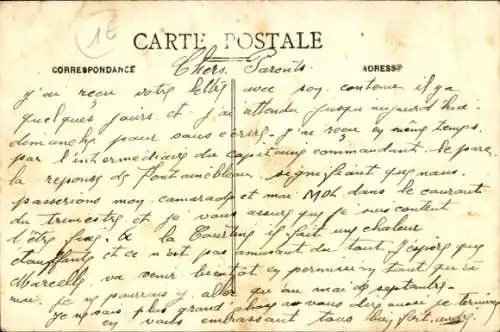 1E
CARTE POSTALE
CORRESPONDANCE
ADRESSE
Chers Parents
J'ai reçu votre lettre avec son contenu il y a
quelques jours et j'ai attendu jusqu'aujourd'hui
dimanche pour vous écrire. J'ai reçu en même temps
par l'intermédiaire du capitaine commandant le parc
la réponse de Fontainebleau signifiant que nous
passerions mon camarade et moi dans le courant
du trimestre et je vous assure que je suis content
d'être fixé. A la Courtine il fait une chaleur
étouffante et ce n'est pas amusant du tout. J'espère que
Marcelle va venir bientôt en permission tant qu'à
moi je ne pourrais y aller que au moi de septembre.
Je ne sais plus grand chose à vous dire aussi je termine
en vous embrassant tous bien fort. André